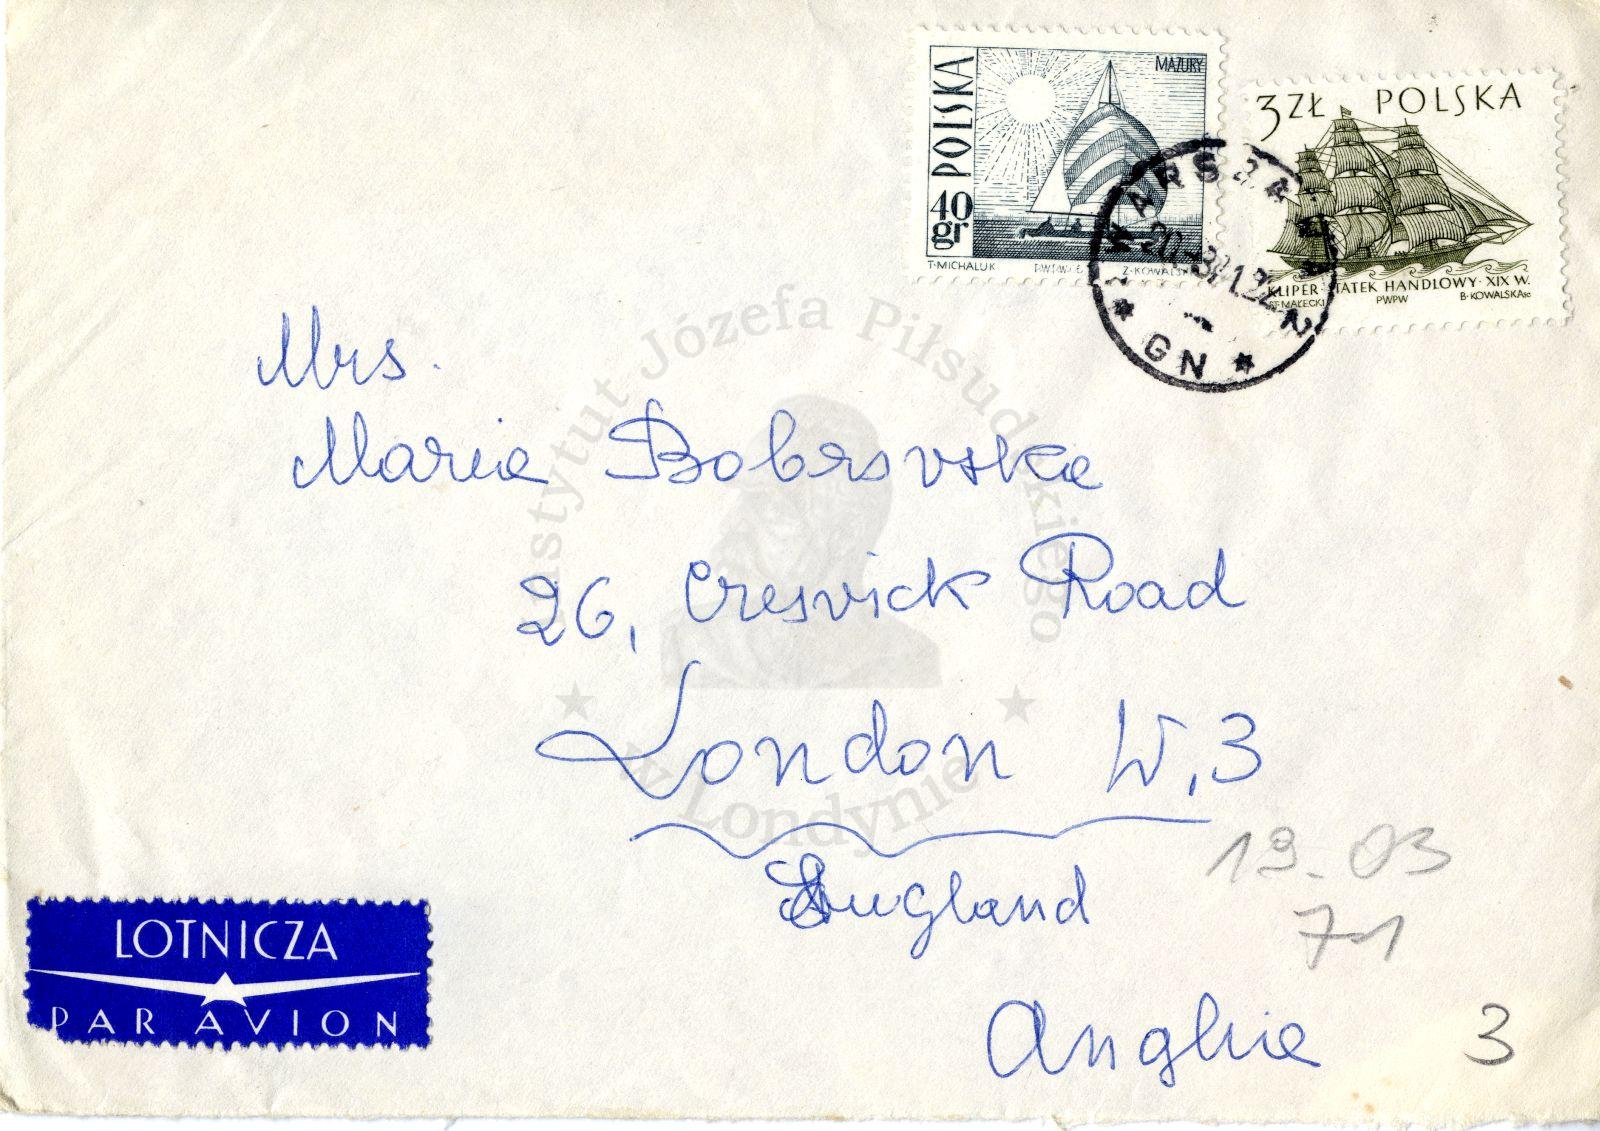 POLSKA
MAZURY
40
gr
T·MICHALUK PWPW Z·KOWALSKI
3 ZŁ POLSKA
KLIPER STATEK HANDLOWY · XIX W.
ST·MAŁECKI PWPW B·KOWALSKA sc
WARSZAWA 2
GN
Mrs.
Maria Bobrowska
26, Creswick Road
London W.3
England
Anglia
19.03
71
3
LOTNICZA
PAR AVION
Instytut Józefa Piłsudskiego
w Londynie